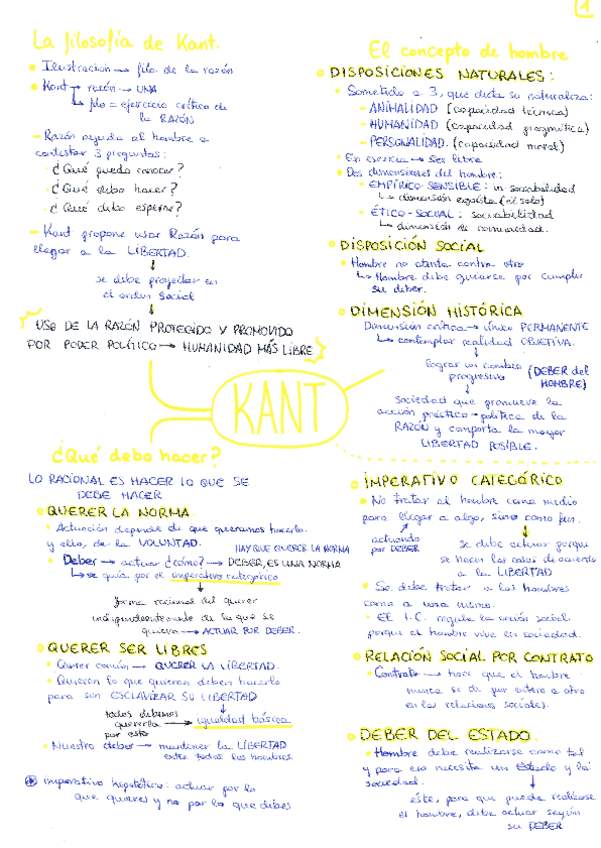 1
La filosofía de Kant.
Ilustración → filo. de la razón
Kant → razón → UNA
filo = ejercicio crítico de
la RAZÓN
- Razón ayuda al hombre a
contestar 3 preguntas:
· ¿Qué puedo conocer?
· ¿Qué debo hacer?
· ¿Qué debo esperar?
- Kant propone usar Razón para
llegar a la LIBERTAD.
↓
se debe proyectar en
el orden social
↓
USO DE LA RAZÓN PROTEGIDO Y PROMOVIDO
POR PODER POLÍTICO → HUMANIDAD MÁS LIBRE
El concepto de hombre
DISPOSICIONES NATURALES:
Sometido a 3, que dicta su naturaleza:
- ANIMALIDAD (capacidad técnica)
- HUMANIDAD (capacidad pragmática)
- PERSONALIDAD. (capacidad moral)
En esencia → Ser libre
Dos dimensiones del hombre:
- EMPÍRICO-SENSIBLE: in sociabilidad
↳ dimensión egoísta (él solo)
- ÉTICO-SOCIAL: sociabilidad
↳ dimensión de comunidad.
DISPOSICIÓN SOCIAL
Hombre no atenta contra otro
↳ Hombre debe guiarse por cumplir
su deber.
DIMENSIÓN HISTÓRICA
Dimensión crítica → único PERMANENTE
↳ contemplar realidad OBJETIVA.
↓
lograr un cambio
progresivo
(DEBER del
HOMBRE)
↓
Sociedad que promueve la
acción práctico-política de la
RAZÓN y comporta la mayor
LIBERTAD POSIBLE.
KANT
¿Qué debo hacer?
LO RACIONAL ES HACER LO QUE SE
DEBE HACER
QUERER LA NORMA
Actuación depende de que queramos hacerlo.
y ello, de la VOLUNTAD.
HAY QUE QUERER LA NORMA
Deber → actuar ¿cómo? → DEBER, ES UNA NORMA
↳ se guía por el imperativo categórico
↓
forma racional del querer
independientemente de lo que se
quiera → ACTUAR POR DEBER.
QUERER SER LIBRES
Querer común → QUERER LA LIBERTAD.
Quieren lo que quieran deben hacerlo
para sin ESCLAVIZAR SU LIBERTAD
↓
todos debemos
quererla
por esto
→ igualdad básica
Nuestro deber → mantener la LIBERTAD
entre todos los hombres.
imperativo hipotético: actuar por lo
que quieres y no por lo que debes
IMPERATIVO CATEGÓRICO
No tratar al hombre como medio
para llegar a algo, sino como fin.
actuando
por DEBER
se debe actuar porque
se hacen las cosas de acuerdo
a la LIBERTAD
Se debe tratar a los hombres
como a uno mismo.
El I.C. regula la acción social
porque el hombre vive en sociedad.
RELACIÓN SOCIAL POR CONTRATO
Contrato → hace que el hombre
nunca se dé por entero a otro
en las relaciones sociales.
DEBER DEL ESTADO.
Hombre debe realizarse como tal
y para eso necesita un Estado y la
sociedad.
↓
éste, para que pueda realizarse
el hombre, debe actuar según
su DEBER